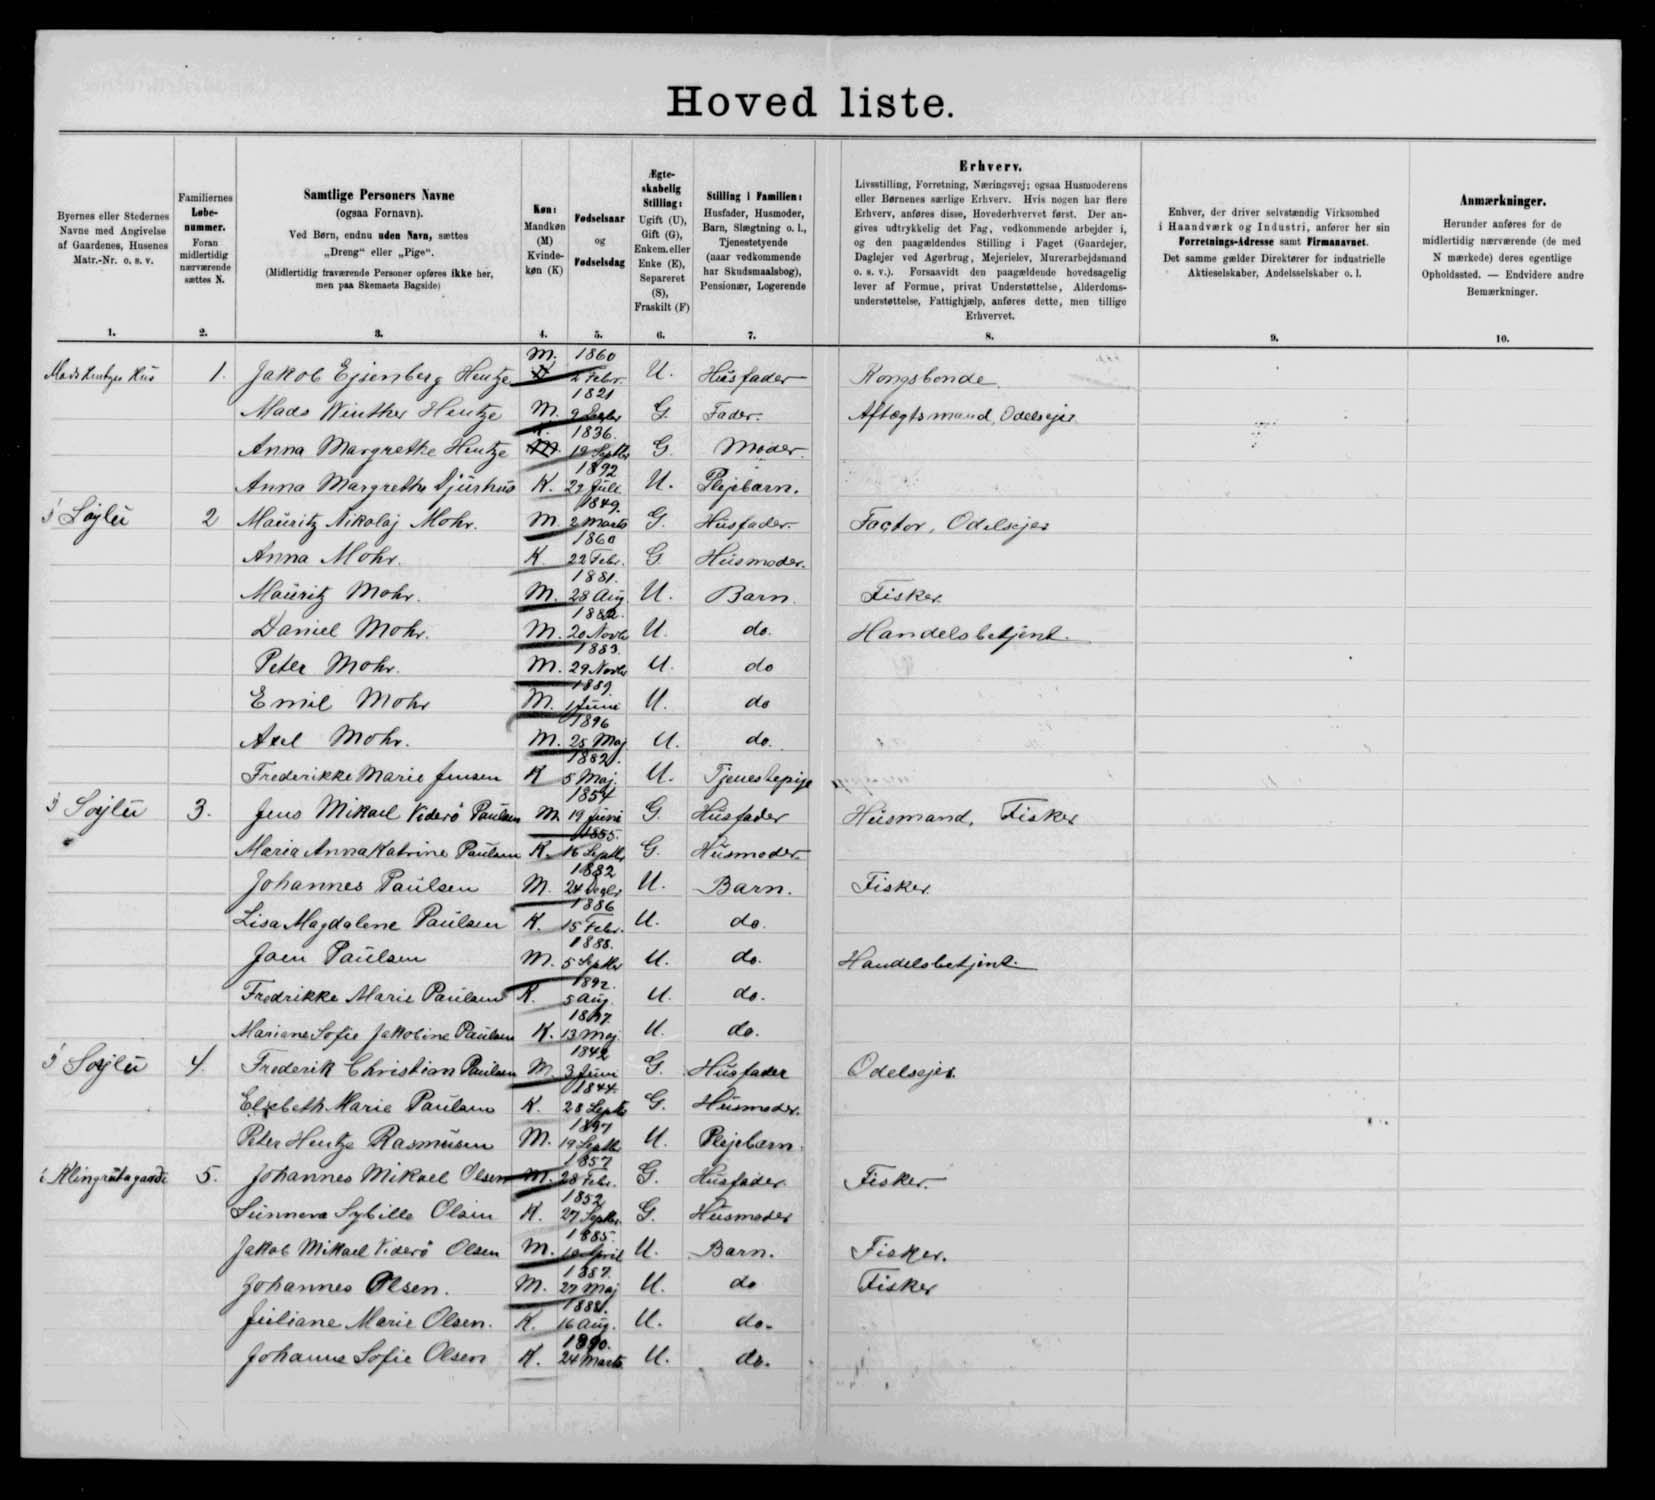 Hoved liste.
Byernes eller Stedernes
Navne med Angivelse
af Gaardenes, Husenes
Matr.-Nr. o. s. v.
1.
Familiernes
Løbe-
nummer.
Foran
midlertidig
nærværende
sættes N.
2.
Samtlige Personers Navne
(ogsaa Fornavn).
Ved Børn, endnu uden Navn, sættes
„Dreng" eller „Pige".
(Midlertidig fraværende Personer opføres ikke her,
men paa Skemaets Bagside)
3.
Køn:
Mandkøn
(M)
Kvinde-
køn (K)
4.
Fødselsaar
og
Fødselsdag
5.
Ægte-
skabelig
Stilling:
Ugift (U),
Gift (G),
Enkem. eller
Enke (E),
Separeret
(S),
Fraskilt (F)
6.
Stilling i Familien:
Husfader, Husmoder,
Barn, Slægtning o. l.,
Tjenestetyende
(aar vedkommende
har Skudsmaalsbog),
Pensionær, Logerende
7.
Erhverv.
Livsstilling, Forretning, Næringsvej; ogsaa Husmoderens
eller Børnenes særlige Erhverv. Hvis nogen har flere
Erhverv, anføres disse, Hovederhvervet først. Der an-
gives udtrykkelig det Fag, vedkommende arbejder i,
og den paagældendes Stilling i Faget (Gaardejer,
Daglejer ved Agerbrug, Mejerielev, Murerarbejdsmand
o. s. v.). Forsaavidt den paagældende hovedsagelig
lever af Formue, privat Understøttelse, Alderdoms-
understøttelse, Fattighjælp, anføres dette, men tillige
Erhvervet.
8.
Enhver, der driver selvstændig Virksomhed
i Haandværk og Industri, anfører her sin
Forretnings-Adresse samt Firmanavnet.
Det samme gælder Direktører for industrielle
Aktieselskaber, Andelsselskaber o. l.
9.
Anmærkninger.
Herunder anføres for de
midlertidig nærværende (de med
N mærkede) deres egentlige
Opholdssted. — Endvidere andre
Bemærkninger.
10.
Mads Hentzes Hus 1. Jakob Ejsenberg Hentze M. 1860 2 Febr. U. Husfader Kongsbonde
Mads Winther Hentze M. 1821 G. Fader. Aftægtsmand, Odelsejer
Anna Margrethe Hentze K. 1836. 19 Septbr G. Moder.
Anna Margrethe Djurhus K. 1892 29 Juli U. Plejebarn.
i Søjlu 2 Mauritz Nikolaj Mohr. M. 1849. 2 Marts G. Husfader. Factor, Odelsejer
Anna Mohr. K 1860 22 Febr. G. Husmoder.
Mauritz Mohr. M. 1881. 28 Aug U. Barn. Fisker
Daniel Mohr. M. 1882. 20 Novbr U. do. Handelsbetjent.
Peter Mohr. M. 1883. 29 Novbr U. do
Emil Mohr M. 1889. 1 Juni U. do
Axel Mohr. M. 1896 25 Maj U. do.
Frederikke Marie Jensen K 1882. 5 Maj. U. Tjenestepige
i Søjlu 3. Jens Mikael Viderø Paulsen M. 1854 19 Juni G. Husfader Husmand, Fisker
Maria Anna Katrine Paulsen K. 1855. 16 Septbr G. Husmoder
Johannes Paulsen M. 1882 U. Barn. Fisker.
Lisa Magdalene Paulsen K. 1886 15 Febr. U. do.
Joen Paulsen M. 1888. 5 Septbr U. do. Handelsbetjent.
Fredrikke Marie Paulsen K. 1892. 5 Aug. U. do.
Mariane Sofie Jakobine Paulsen K. 1897. 13 Maj U. do.
i Søjlu 4. Frederik Christian Paulsen M. 1842 3 Juni G. Husfader Odelsejer.
Elsebeth Marie Paulsen K. 1844. 28 Septbr G. Husmoder.
Peter Hentze Rasmusen M. 1897 19 Septbr U. Plejebarn.
5. Johannes Mikael Olsen M. 1857 28 Febr. G. Husfader Fisker.
Sunneva Sybille Olsen K. 1852 27 Septbr. G. Husmoder
Jakob Mikael Viderø Olsen M. 1885. April U. Barn. Fisker.
Johannes Olsen. M. 1887. 27 Maj U. do Fisker
Juliane Marie Olsen. K. 1888. 16 Aug. U. do.
Johanne Sofie Olsen K. 1890. 24 Marts U. do.